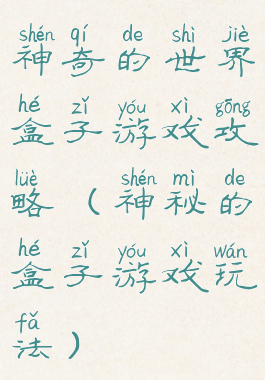 shén qí de shì jiè
神奇的世界
hé zǐ yóu xì gōng
盒子游戏攻
lüè shén mì de
略（神秘的
hé zǐ yóu xì wán
盒子游戏玩
fǎ
法）